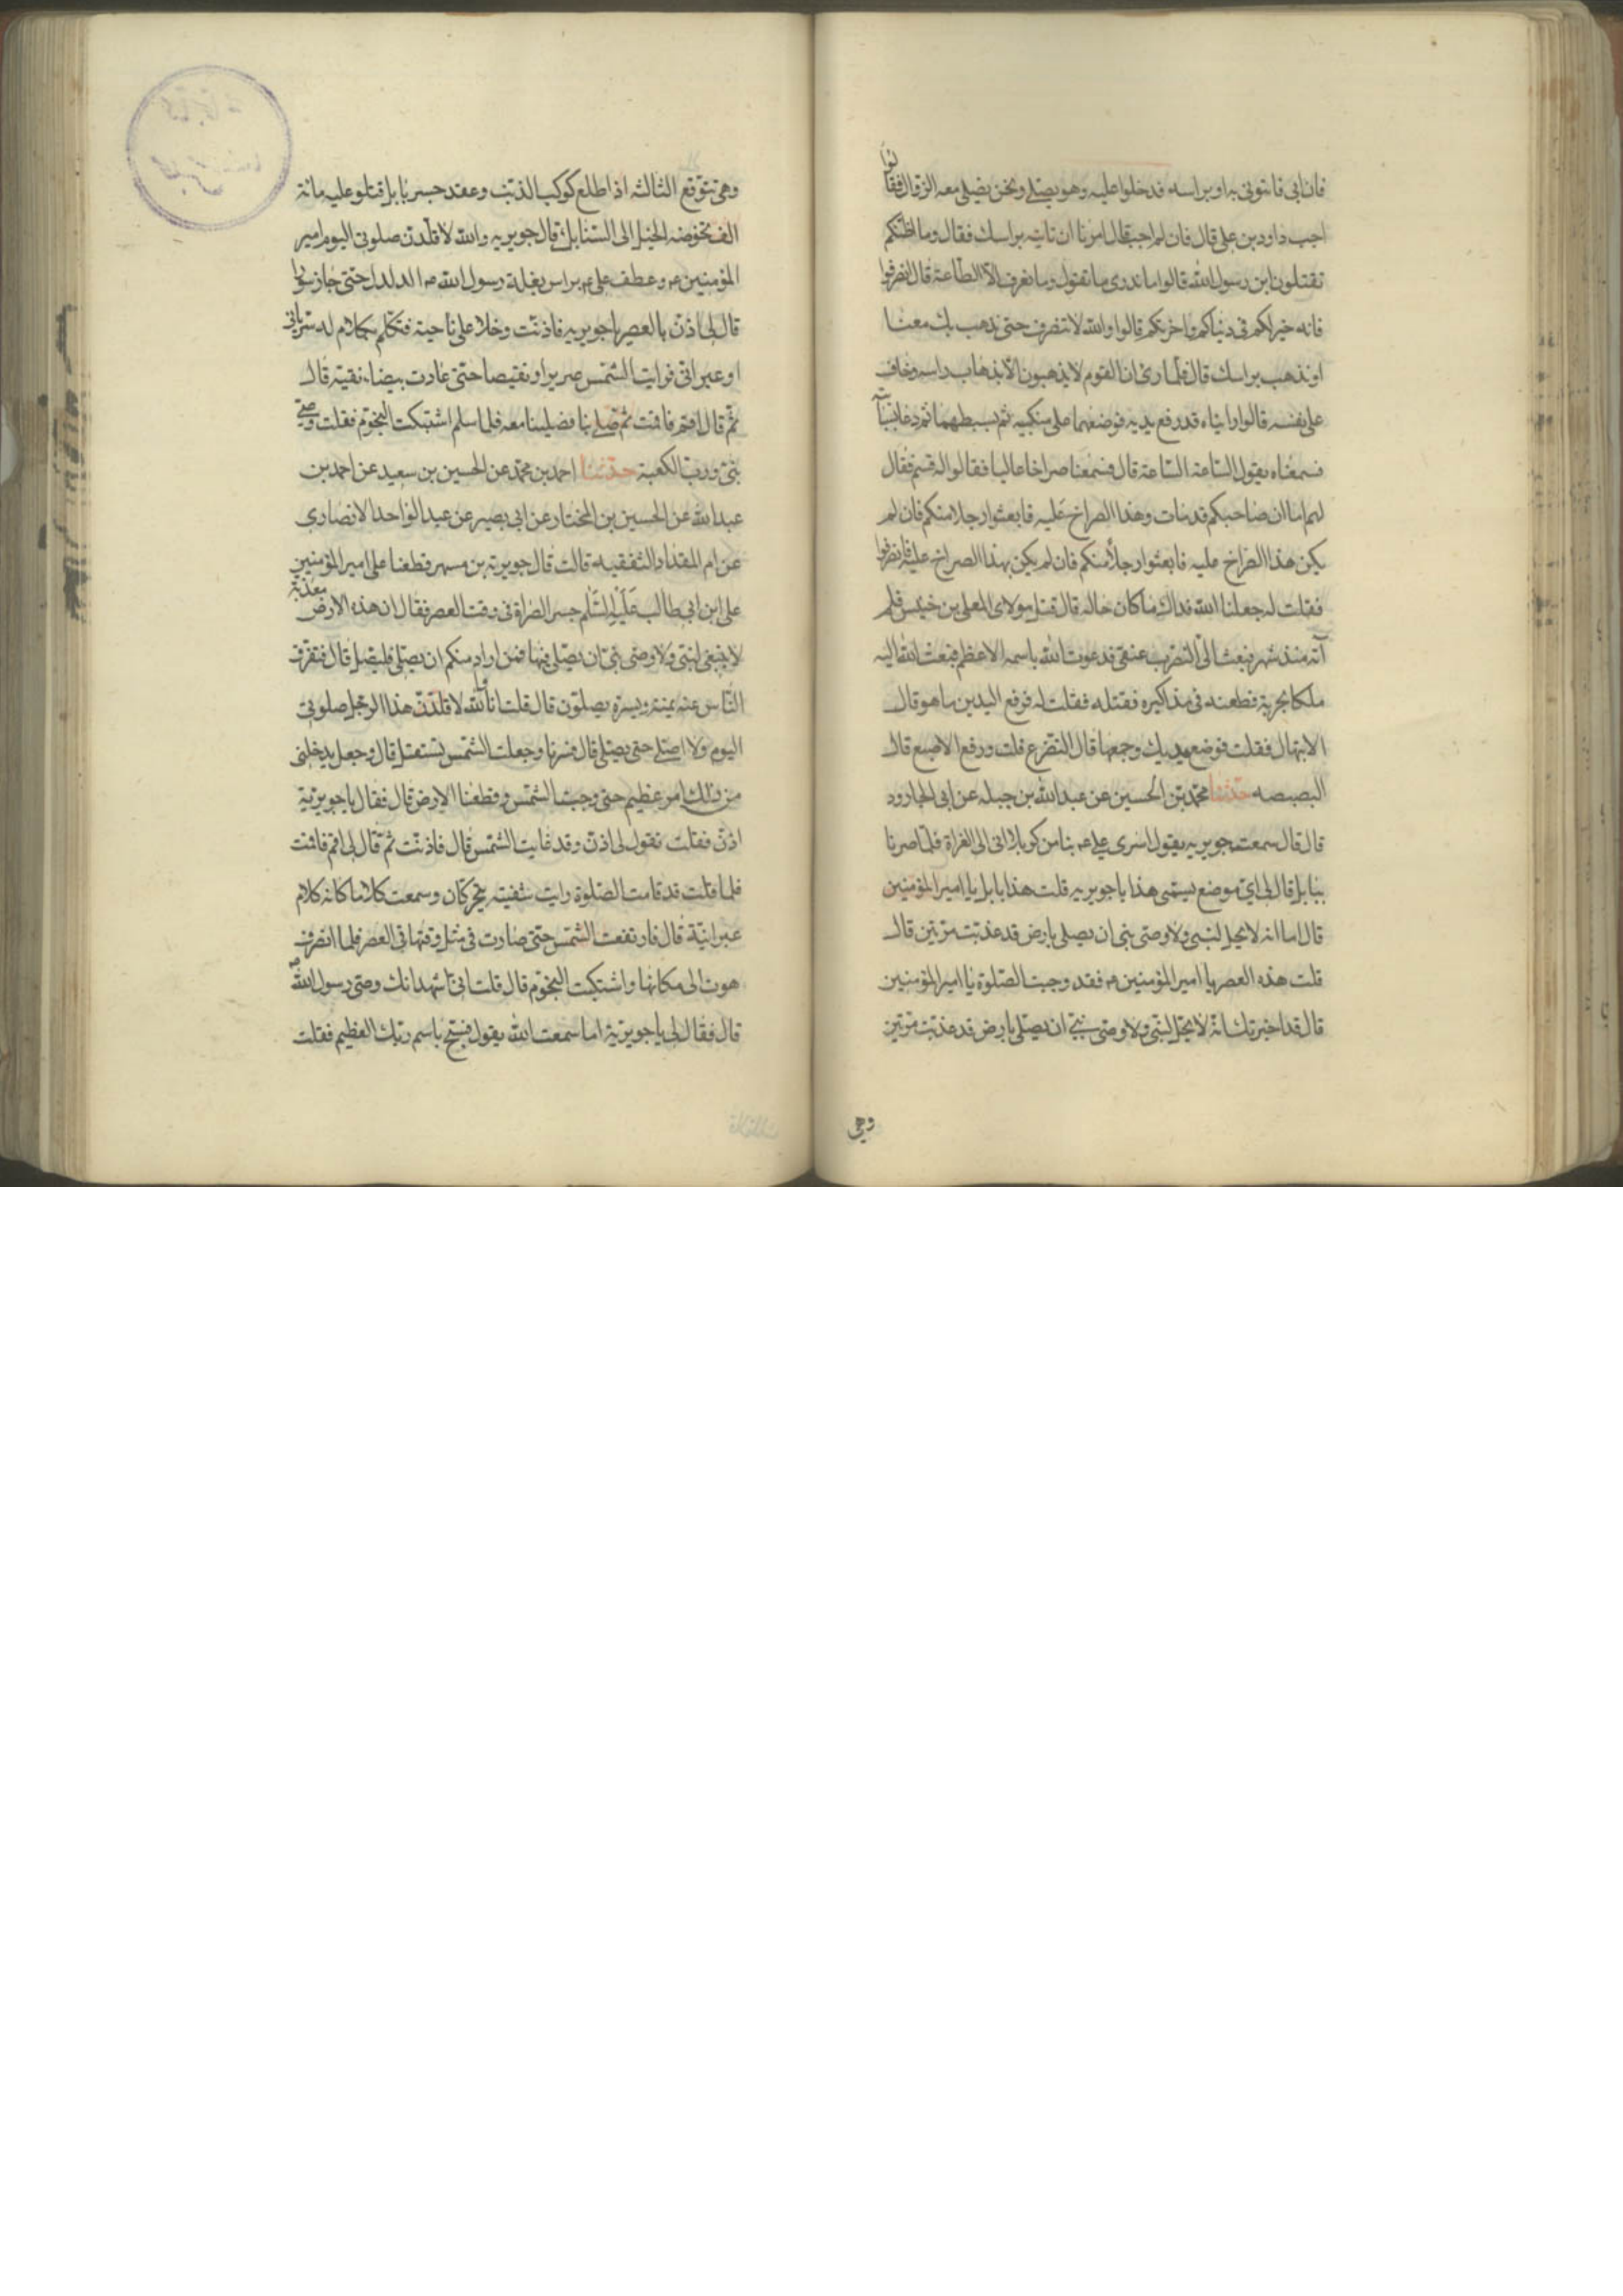 فان ابى فائتونى به او براسه فدخلوا عليه وهو يصلى ونحن نصلى معه الزوال فقالوا
اجب داود بن على قال فان لم اجب قال امرنا ان ناتيه براسك فقال وما اظنكم
تقتلون ابن رسول الله قالوا ما ندرى ما تقول وما نعرف الا الطاعة قال انصرفوا
فانه خير لكم فى دنياكم واخرتكم قالوا والله لا ننصرف حتى نذهب بك معنا
او نذهب براسك قال فلما راى ان القوم لا يذهبون الا بذهاب راسه وخاف
على نفسه قالوا رايناه قد رفع يديه فوضعهما على منكبيه ثم بسطهما ثم دعا بسبابته
فسمعناه يقول الساعة الساعة قال فسمعنا صراخا عاليا فقالوا له قم فقال
لهم اما ان صاحبكم قد مات وهذا الصراخ عليه فابعثوا رجلا منكم فان لم
يكن هذا الصراخ عليه فابعثوا رجلا منكم فان لم يكن هذا الصراخ عليه فانصرفوا
فقلت له جعلنا الله فداك ما كان حاله قال قتل مولاى المعلى بن خنيس فلم
آته منذ شهر فبعث الى ليضرب عنقى فدعوت الله باسمه الاعظم فبعث الله اليه
ملكا بحربة فطعنه فى مذاكيره فقتله فقلت له فرفع اليدين ما هو قال
الابتهال فقلت فوضع يديك وجمعها قال التضرع قلت ورفع الاصبع قال
البصبصه حدثنا محمد بن الحسين عن عبد الله بن جبله عن ابى الجارود
قال قال سمعت جويريه يقول اسرى على ع بنا من كربلا الى الفراة فلما صرنا
ببابل قال لى اى موضع يسمى هذا يا جويريه قلت هذا بابل يا امير المؤمنين
قال اما انه لا يحل لنبى ولا وصى نبى ان يصلى بارض قد عذبت مرتين قال
قلت هذه العصر يا امير المؤمنين ع فقد وجبت الصلوة يا امير المؤمنين
قال قد اخبرتك انه لا يحل لنبى ولا وصى نبى ان يصلى بارض قد عذبت مرتين
وهى
وهى تتوقع الثالثه اذا طلع كوكب الذنب وعقد جسر بابل قتلوا عليه مائة
الف تخوضه الخيل الى السنابك قال جويريه والله لا قلدن صلوتى اليوم امير
المؤمنين ع وعطف على ع براس بغلة رسول الله ص الدلدل حتى جاز سورا
قال لى اذن بالعصر يا جويريه فاذنت وخلا على ناحية فتكلم بكلام له سريانى
او عبرانى فرايت الشمس صريرا ونقيضا حتى عادت بيضاء نقية قال
ثم قال اقم فاقمت ثم صلى بنا فصلينا معه فلما سلم اشتبكت النجوم فقلت وصى
نبى ورب الكعبة حدثنا احمد بن محمد عن الحسين بن سعيد عن احمد بن
عبد الله عن الحسين بن المختار عن ابى بصير عن عبد الواحد الانصارى
عن ام المقداد الثقفيه قالت قال جويرية بن مسهر قطعنا على امير المؤمنين
على ابن ابى طالب عليه السلم جسر الصراة فى وقت العصر فقال ان هذه الارض معذبة
لا ينبغى لنبى ولا وصى نبى ان يصلى فيها فمن اراد منكم ان يصلى فليصل قال فتفرق
الناس عنه يمنة ويسرة يصلون قال قلت انا والله لا قلدن هذا الرجل صلوتى
اليوم ولا اصلى حتى يصلى قال فسرنا وجعلت الشمس تستفل قال وجعل يدخلنى
من ذلك امر عظيم حتى وجبت الشمس وقطعنا الارض قال فقال يا جويرية
اذن فقلت تقول لى اذن وقد غابت الشمس قال فاذنت ثم قال لى اقم فاقمت
فلما قلت قد قامت الصلوة رايت شفتيه يتحركان وسمعت كلاما كانه كلام
عبرانية قال فارتفعت الشمس حتى صارت فى مثل وقتها فى العصر فلما انصرف
هوت الى مكانها واشتبكت النجوم قال قلت انى اشهد انك وصى رسول الله ص
قال فقال لى يا جويرية اما سمعت الله يقول فسبح باسم ربك العظيم فقلت